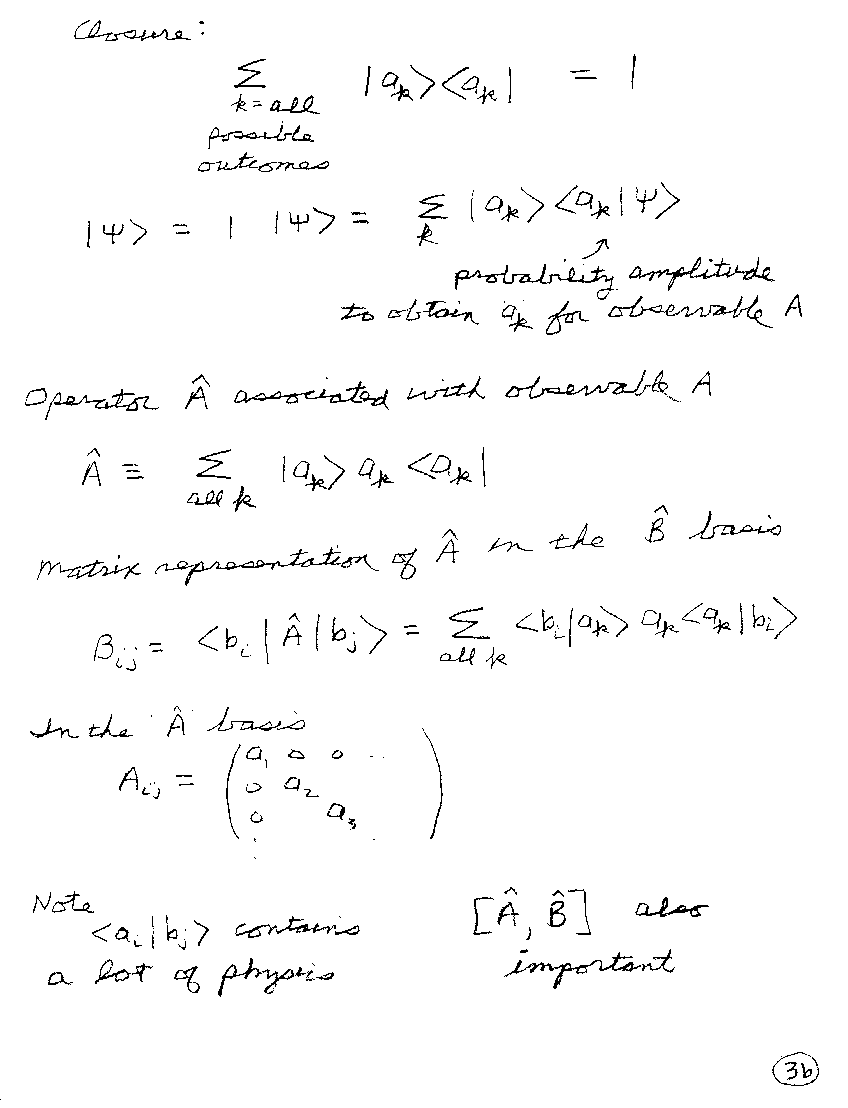 Closure:
∑ |aₖ> <aₖ| = 1
k = all
possible
outcomes
|Ψ> = 1 |Ψ> = ∑ₖ |aₖ> <aₖ|Ψ>
probability amplitude
to obtain aₖ for observable A
Operator Â associated with observable A
Â ≡ ∑ |aₖ> aₖ <aₖ|
all k
Matrix representation of Â in the B̂ basis
Bᵢⱼ = <bᵢ|Â|bⱼ> = ∑ <bᵢ|aₖ> aₖ <aₖ|bᵢ>
all k
In the Â basis
Aᵢⱼ = ( a₁ 0 0 ..
0 a₂
0 a₃ )
:
Note
<aᵢ|bⱼ> contains
a lot of physics
[Â, B̂] also
important
3b